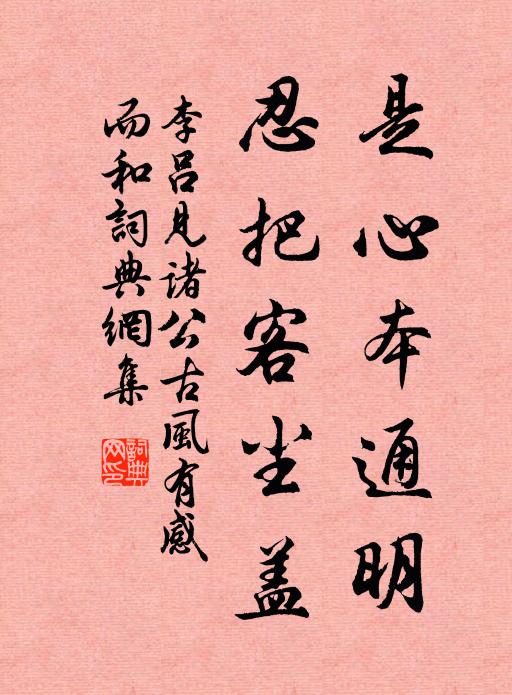 是心本通明
忍把客尘盖
李吕見诸公古風有感
而和詞典網集
詞典网印